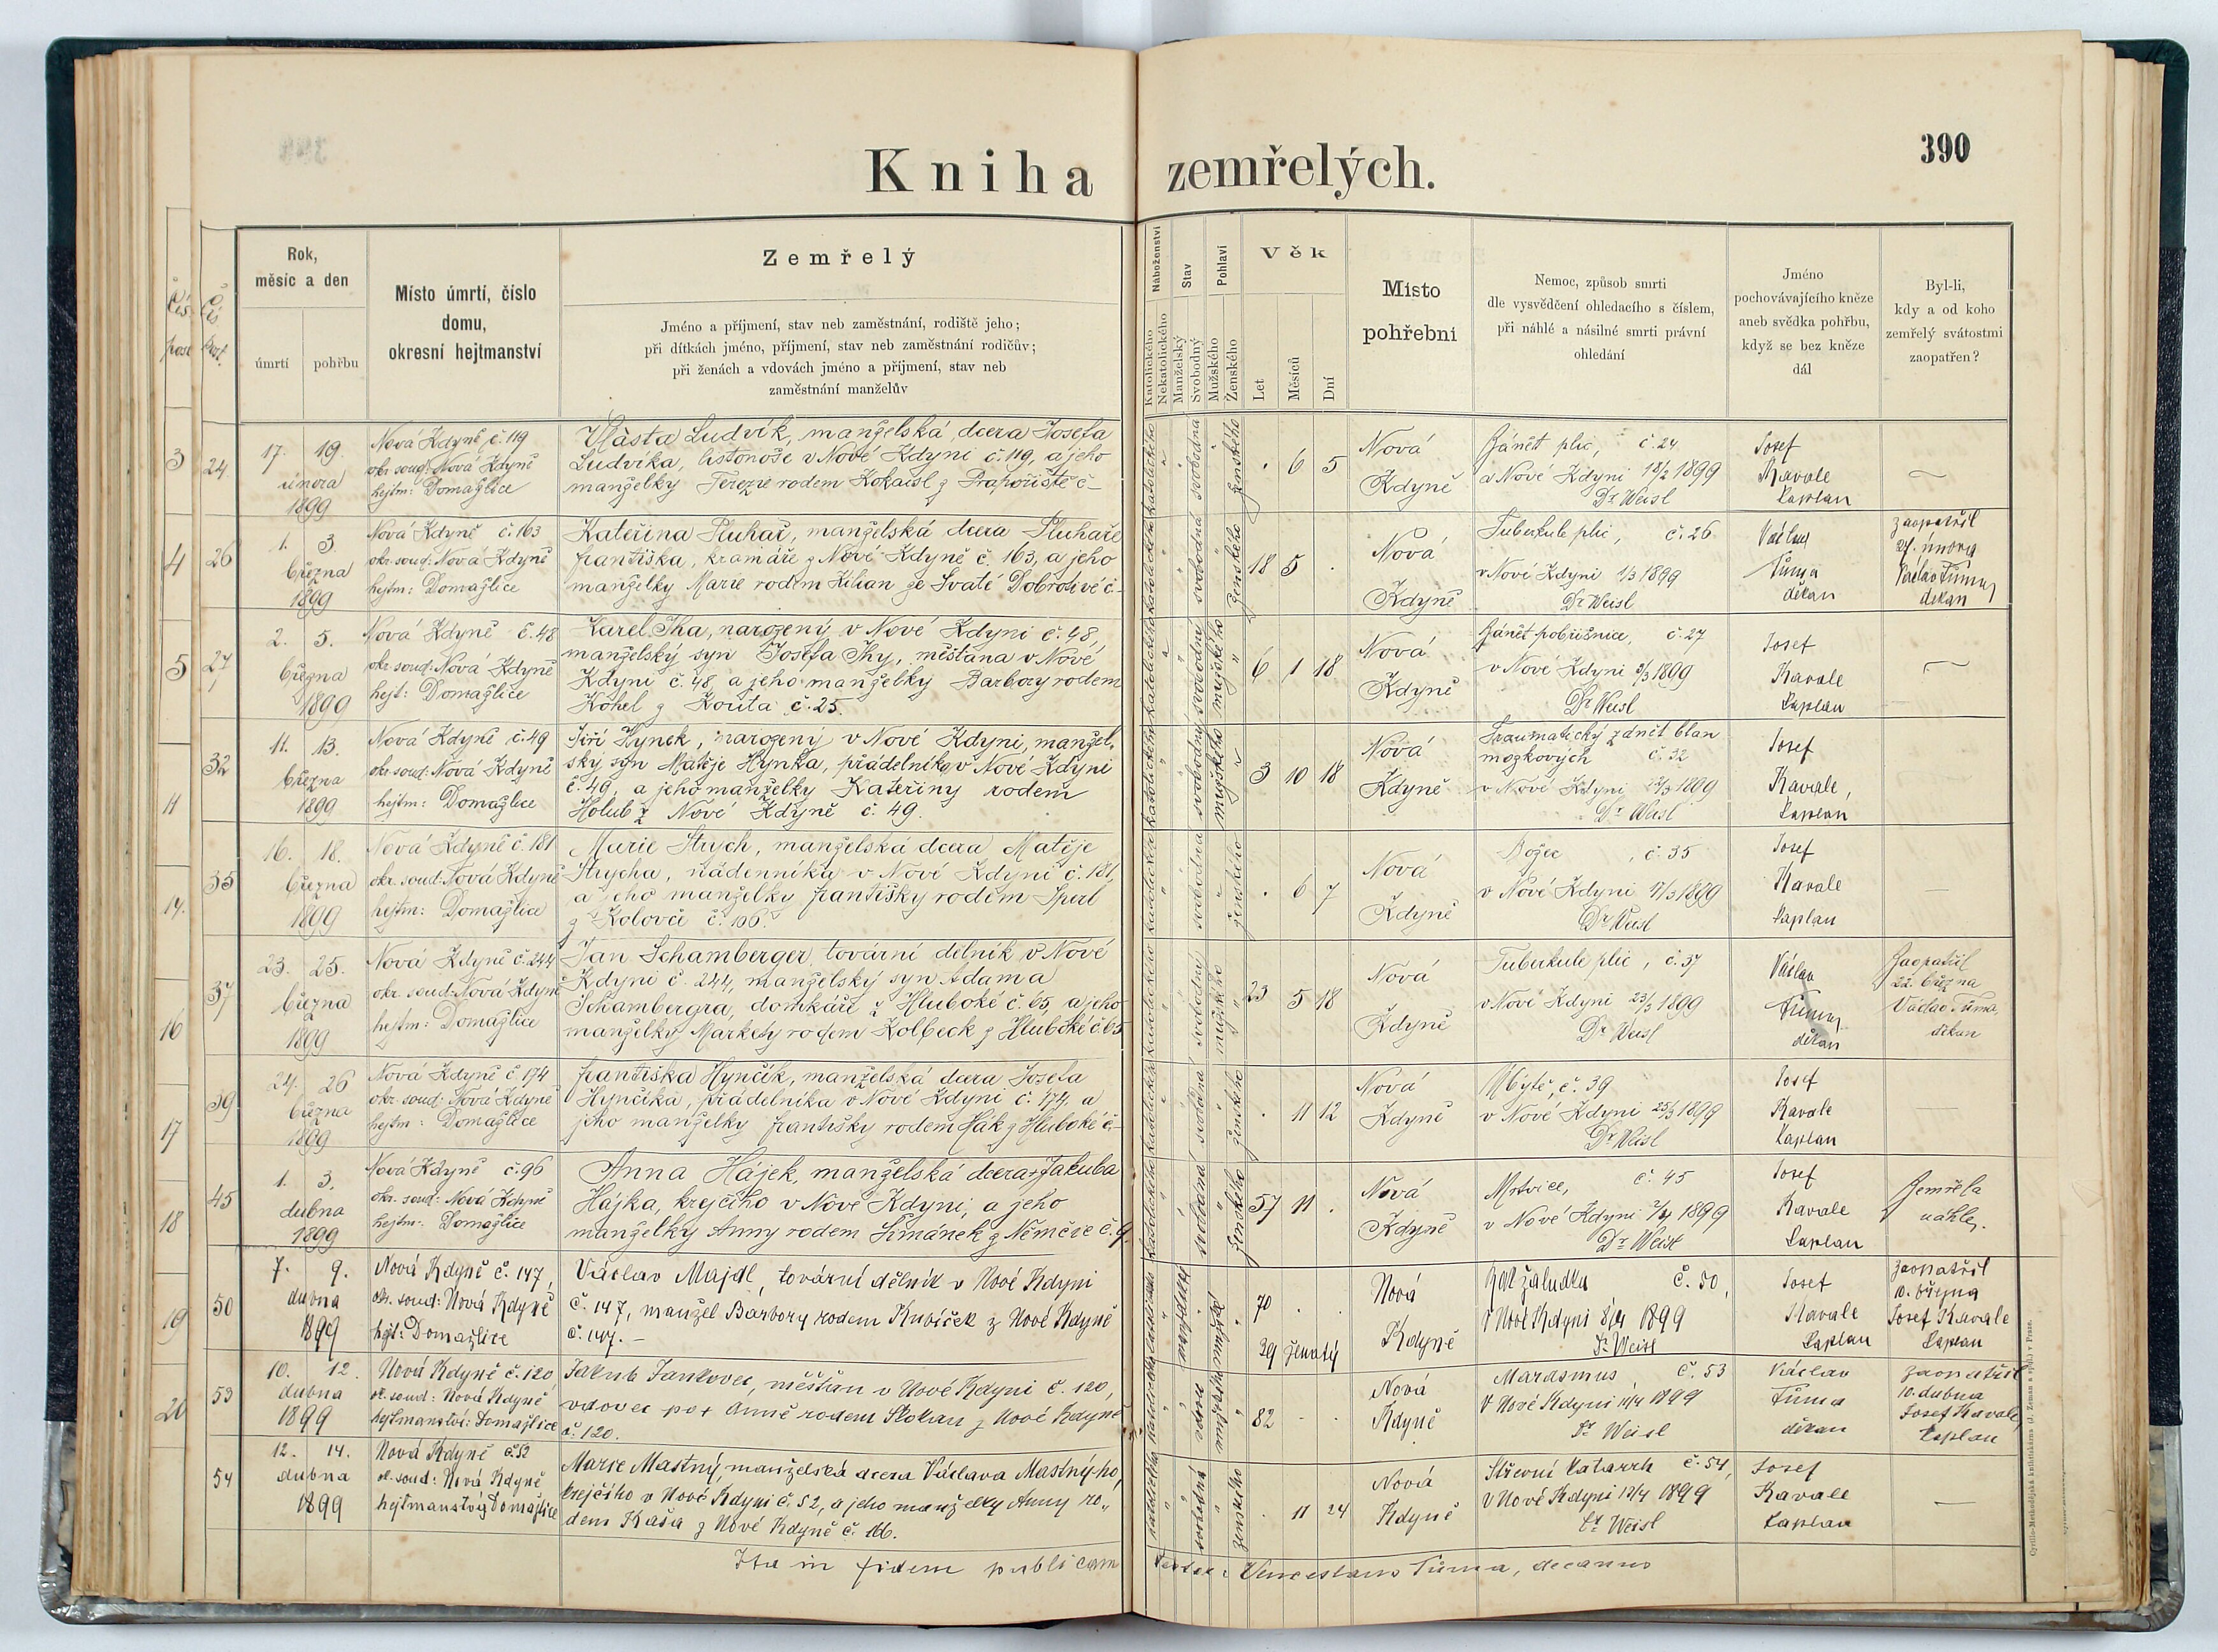 390
Kniha zemřelých.
Čís. post.
Rok, měsíc a den
úmrtí
pohřbu
Místo úmrtí, číslo
domu,
okresní hejtmanství
Zemřelý
Jméno a příjmení, stav neb zaměstnání, rodiště jeho;
při dítkách jméno, příjmení, stav neb zaměstnání rodičův;
při ženách a vdovách jméno a příjmení, stav neb
zaměstnání manželův
Náboženství
Katolického
Nekatolického
Stav
Manželský
Svobodný
Pohlaví
Mužského
Ženského
Věk
Let
Měsíců
Dní
Místo
pohřební
Nemoc, způsob smrti
dle vysvědčení ohledacího s číslem,
při náhlé a násilné smrti právní
ohledání
Jméno
pochovávajícího kněze
aneb svědka pohřbu,
když se bez kněze
dál
Byl-li,
kdy a od koho
zemřelý svátostmi
zaopatřen?
3
24
17. 19.
února
1899
Nová Kdyně, č. 119
okr. soud: Nová Kdyně
hejtm: Domažlice
Vlasta Ludvík, manželská dcera Josefa
Ludvíka, listonoše v Nové Kdyni č. 119, a jeho
manželky Terezie rodem Kokaisl z Prapořiště č –
katolického
svobodná
ženského
. 6 5
Nová
Kdyně
Zánět plic, č. 24
v Nové Kdyni 18/2 1899
Dr Weisl
Josef
Kavale
kaplan
4
26
1. 3.
března
1899
Nová Kdyně č. 163
okr. soud: Nová Kdyně
hejtm: Domažlice
Kateřina Pluhař, manželská dcera Pluhaře
Františka, kramáře z Nové Kdyně č. 163, a jeho
manželky Marie rodem Kilian ze Svaté Dobrotivé č –
katolického
svobodná
ženského
18 5 .
Nová
Kdyně
Tuberkule plic, č. 26
v Nové Kdyni 1/3 1899
Dr Weisl
Václav
Tůma
děkan
zaopatřil
27. února
Václav Tůma
děkan
5
27
2. 5.
března
1899
Nová Kdyně č. 48
okr. soud: Nová Kdyně
hejt: Domažlice
Karel Tka, narozený v Nové Kdyni č. 48,
manželský syn Josefa Tky, měšťana v Nové
Kdyni č. 48, a jeho manželky Barbory rodem
Kohel z Kouta č. 25.
katolického
svobodný
mužského
6 1 18
Nová
Kdyně
Zánět pobřišnice, č. 27
v Nové Kdyni 3/3 1899
Dr Weisl
Josef
Kavale
kaplan
11
32
11. 13.
března
1899
Nová Kdyně č. 49
okr. soud: Nová Kdyně
hejtm: Domažlice
Jiří Hynek, narozený v Nové Kdyni, manžel-
ský syn Matěje Hynka, přádelníka v Nové Kdyni
č. 49, a jeho manželky Kateřiny rodem
Holub z Nové Kdyně č. 49.
katolického
svobodný
mužského
3 10 18
Nová
Kdyně
Traumatický zánět blan
mozkových č. 32
v Nové Kdyni 1899
Dr Weisl
Josef
Kavale,
kaplan
14.
35
16. 18.
března
1899
Nová Kdyně č. 181
okr. soud: Nová Kdyně
hejtm: Domažlice
Marie Strych, manželská dcera Matěje
Strycha, nádenníka v Nové Kdyni č. 181,
a jeho manželky Františky rodem Sperl
z Kolovče č. 106.
katolického
svobodná
ženského
. 6 7
Nová
Kdyně
Božec, č. 35
v Nové Kdyni 17/3 1899
Dr Weisl
Josef
Kavale
kaplan
16
37
23. 25.
března
1899
Nová Kdyně č. 244
okr. soud: Nová Kdyně
hejtm: Domažlice
Jan Schamberger, tovární dělník v Nové
Kdyni č. 244, manželský syn Adama
Schambergra, domkáře z Hluboké č. 65, a jeho
manželky Markety rodem Kolbeck z Hluboké č. 65
katolického
svobodný
mužského
23 5 18
Nová
Kdyně
Tuberkule plic, č. 37
v Nové Kdyni 23/3 1899
Dr Weisl
Václav
Tůma
děkan
Zaopatřil
22. března
Václav Tůma,
děkan
17
39
24. 26
března
1899
Nová Kdyně č 174
okr. soud: Nová Kdyně
hejtm: Domažlice
Františka Hynčík, manželská dcera Josefa
Hynčíka, přádelníka v Nové Kdyni č. 174, a
jeho manželky Františky rodem Hák z Hluboké č –
katolického
svobodná
ženského
. 11 12
Nová
Kdyně
Úbytě, č. 39
v Nové Kdyni 25/3 1899
Dr Weisl
Josef
Kavale
kaplan
18
45
1. 3.
dubna
1899
Nová Kdyně č. 96
okr. soud: Nová Kdyně
hejtm: Domažlice
Anna Hájek, manželská dcera + Jakuba
Hájka, krejčího v Nové Kdyni, a jeho
manželky Anny rodem Šimánek z Němčic č. 9
katolického
svobodná
ženského
57 11 .
Nová
Kdyně
Mrtvice, č. 45
v Nové Kdyni 2/4 1899
Dr Weisl
Josef
Kavale
kaplan
Zemřela
náhle.
19
50
7. 9.
dubna
1899
Nová Kdyně č. 147,
okr. soud: Nová Kdyně
hejt: Domažlice
Václav Majdl, tovární dělník v Nové Kdyni
č. 147, manžel Barbory rodem Kubíček z Nové Kdyně
č. 147. –
katolického
mužské
70 . .
39 ženatý
Nová
Kdyně
žaludku č. 50,
v Nové Kdyni 8/4 1899
Dr Weisl
Josef
Kavale
kaplan
zaopatřil
10. března
Josef Kavale
kaplan
20
53
10. 12.
dubna
1899
Nová Kdyně č. 120
ok. soud: Nová Kdyně
hejtmanství: Domažlice
Jakub Jankovec, měšťan v Nové Kdyni č. 120,
vdovec po + Anně rodem Skokan z Nové Kdyně
č. 120.
katolického
vdovec
mužského
82 . .
Nová
Kdyně
Marasmus č. 53
v Nové Kdyni 11/4 1899
Dr Weisl
Václav
Tůma
děkan
zaopatřil
10. dubna
Josef Kavale,
kaplan
54
12. 14.
dubna
1899
Nová Kdyně č. 52
ok. soud: Nová Kdyně
hejtmanství Domažlice
Marie Mastný, manželská dcera Václava Mastný-ho,
krejčího v Nové Kdyni č. 52, a jeho manželky Anny ro-
dem Kaša z Nové Kdyně č. 166.
katolického
svobodná
ženského
. 11 24
Nová
Kdyně
Střevní katarrh č. 54,
v Nové Kdyni 12/4 1899
Dr Weisl
Josef
Kavale
kaplan
Ita in fidem publicam
testor: Venceslaus Tůma, decanus
Cyrillo-Methodějská knihtiskárna (J. Zeman a spol.) v Praze.